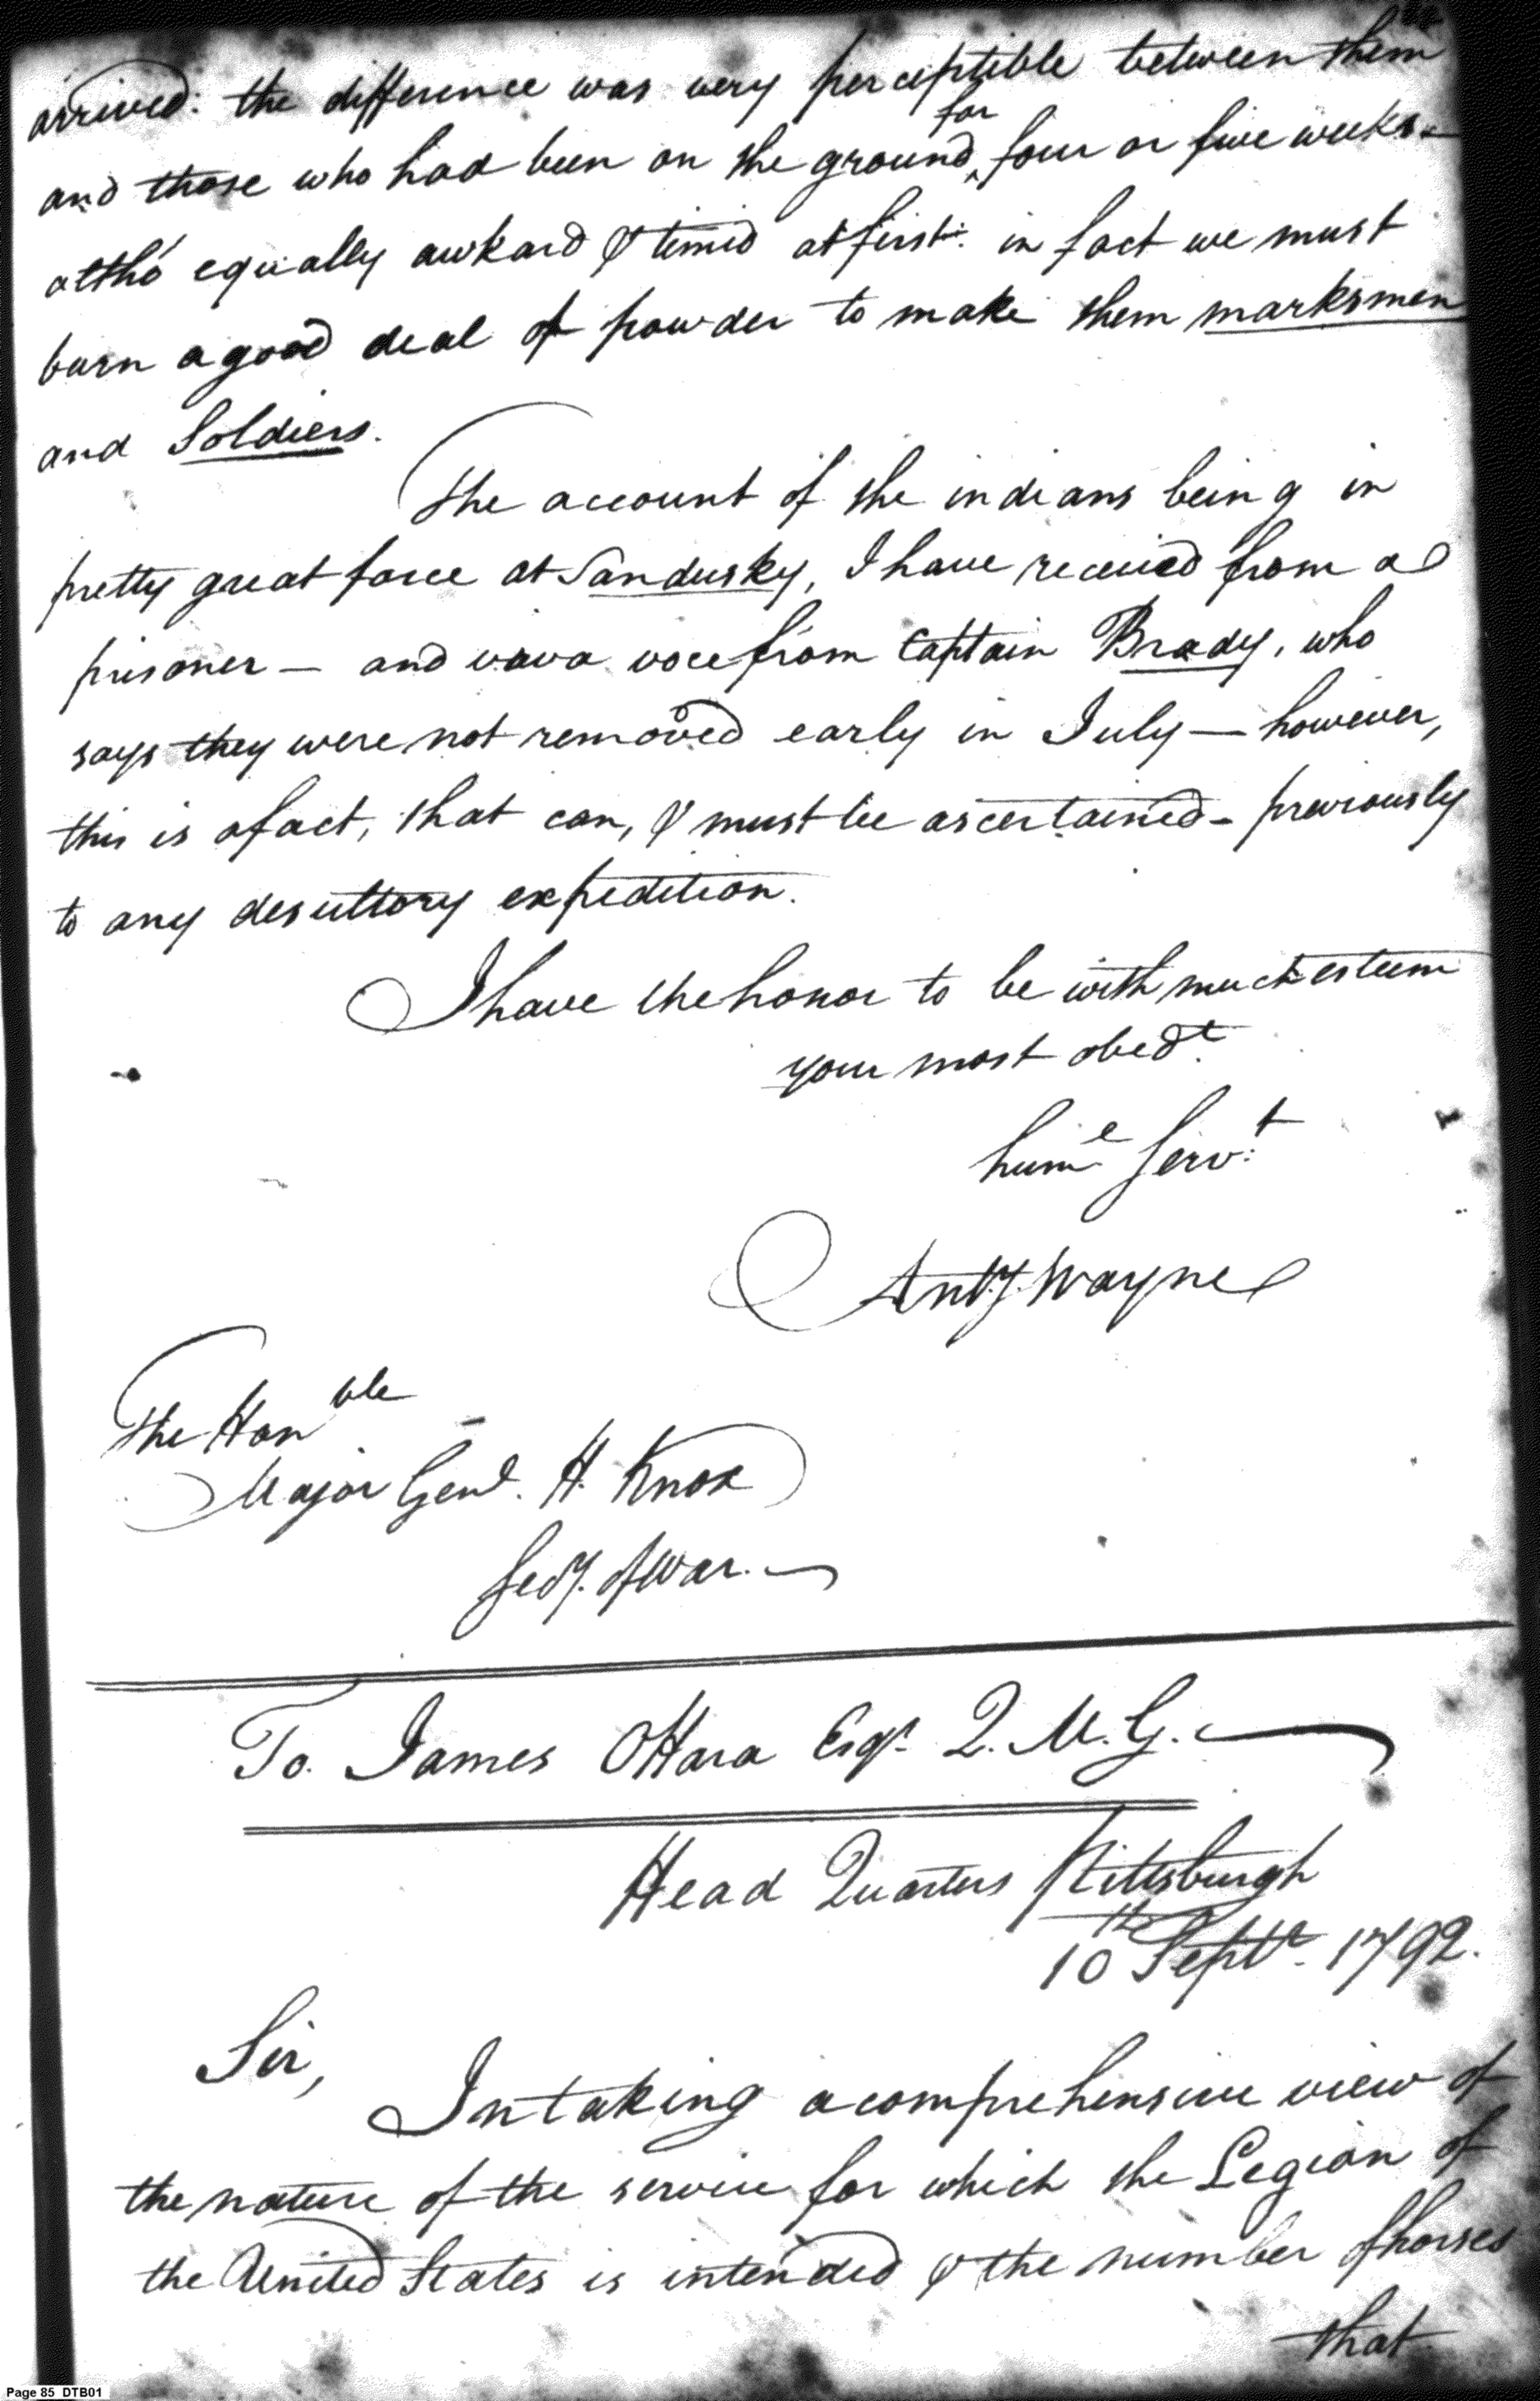 arrived: the difference was very perceptible between them
and those who had been on the ground for four or five weeks—
altho' equally awkard & timid at first: in fact we must
burn a good deal of powder to make them marksmen
and Soldiers.
The account of the indians being in
pretty great force at Sandusky, I have received from a
prisoner — and viva voce from Captain Brady, who
says they were not removed early in July — however,
this is a fact, that can, & must be ascertained – previously
to any desultory expedition.
I have the honor to be with much esteem
your most obedt.
humle Servt.
Anty. Wayne
The Honble
Major Genl. H. Knox
Secy. of War. —
To. James OHara Esqr. Q. M. G. —
Head Quarters Pittsburgh
10th Septr. 1792.
Sir,
In taking a comprehensive view of
the nature of the service for which the Legion of
the United States is intended & the number of horses
that
Page 85 DTB01